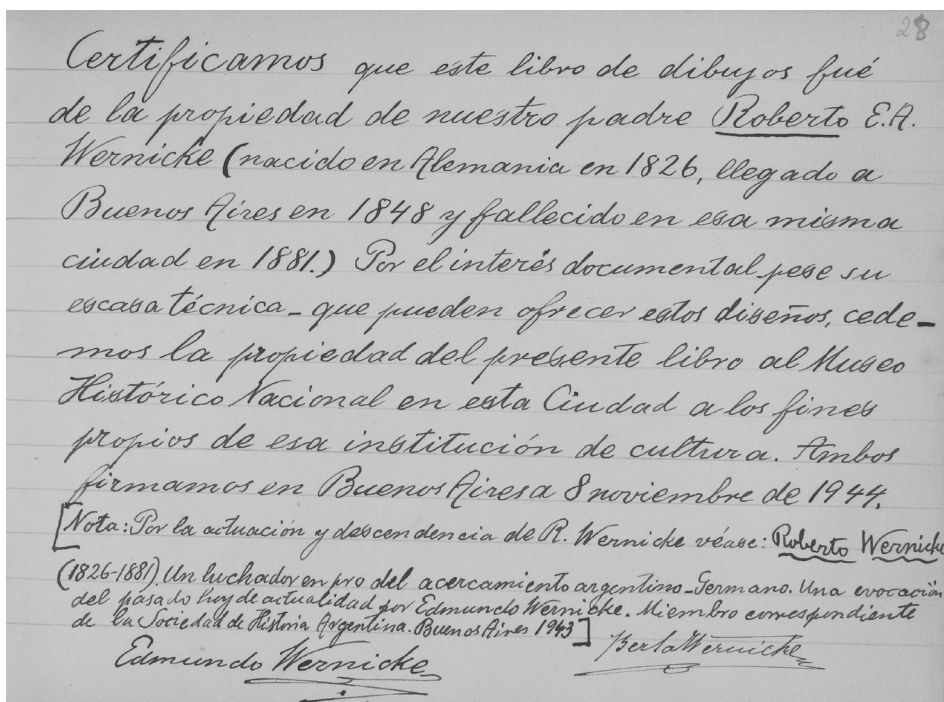 28
Certificamos que este libro de dibujos fué
de la propiedad de nuestro padre Roberto E.A.
Wernicke (nacido en Alemania en 1826, llegado a
Buenos Aires en 1848 y fallecido en esa misma
ciudad en 1881.) Por el interés documental_pese su
escasa técnica_que pueden ofrecer estos diseños, cede-
mos la propiedad del presente libro al Museo
Histórico Nacional en esta Ciudad a los fines
propios de esa institución de cultura. Ambos
firmamos en Buenos Aires a 8 noviembre de 1944.
[Nota: Por la actuación y descendencia de R. Wernicke véase: Roberto Wernicke
(1826-1881). Un luchador en pro del acercamiento argentino-Germano. Una evocación
del pasado hoy de actualidad por Edmundo Wernicke. Miembro correspondiente
de la Sociedad de Historia Argentina. Buenos Aires 1943]
Edmundo Wernicke Berta Wernicke